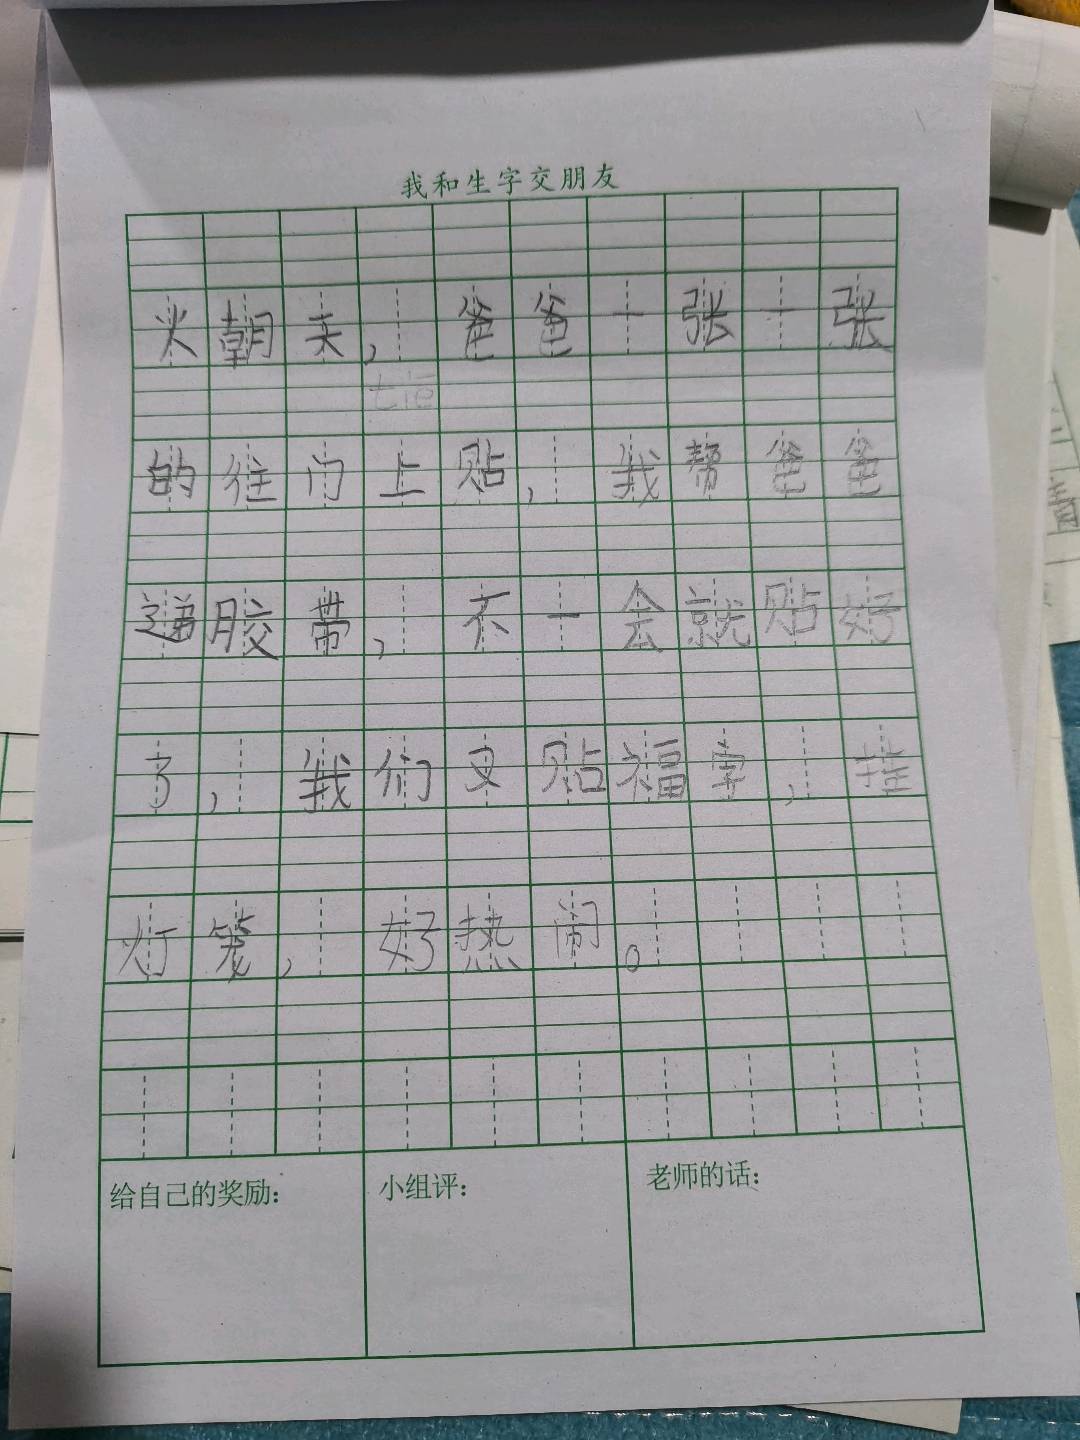 我和生字交朋友
火朝天，爸爸一张一张
的往门上贴，我帮爸爸
递胶带，不一会就贴好
了，我们又贴福字，挂
灯笼，好热闹。
给自己的奖励：
小组评：
老师的话：